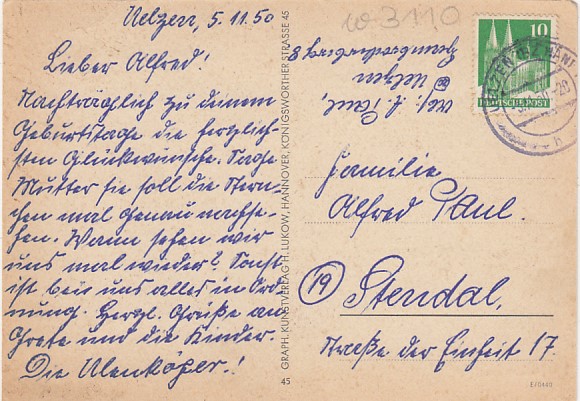 Uelzen, 5.11.50
Lieber Alfred!
Nachträglich zu deinem
Geburtstage die herzlich-
sten Glückwünsche. Sage
Mutter sie soll die
mal genau nachse-
hen. Wann sehen wir
uns mal wieder? Sonst
ist bei uns alles in Ord-
nung. Herzl. Grüße an
Grete und die Kinder.
Die
GRAPH. KUNSTVERLAG H. LUKOW, HANNOVER, KÖNIGSWORTHER STRASSE 45
45
3110
Abs: A. Paul,
Uelzen
8
10
DEUTSCHE POST
UELZEN
Familie
Alfred Paul.
(19) Stendal,
Straße der Einheit 17.